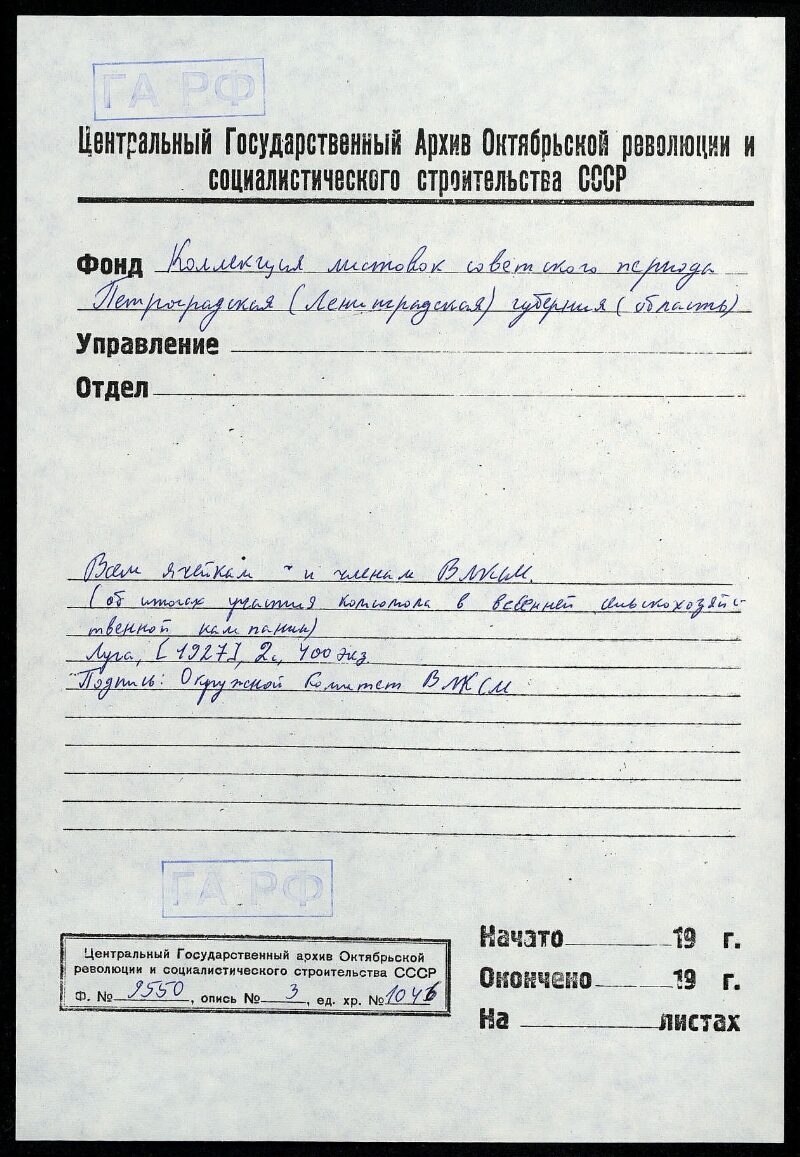 ГА РФ
Центральный Государственный Архив Октябрьской революции и
социалистического строительства СССР
Фонд Коллекция листовок советского периода
Петроградская (Ленинградская) губерния (область)
Управление
Отдел
Всем ячейкам и членам ВЛКСМ.
(об итогах участия комсомола в весенней сельскохозяй-
твенной кампании)
Луга, [1927], 2с, 400 экз.
Подпись: Окружной Комитет ВЛКСМ
ГА РФ
Центральный Государственный архив Октябрьской
революции и социалистического строительства СССР
Ф. № 9550, опись № 3, ед. хр. № 1046
Начато 19 г.
Окончено 19 г.
На листах